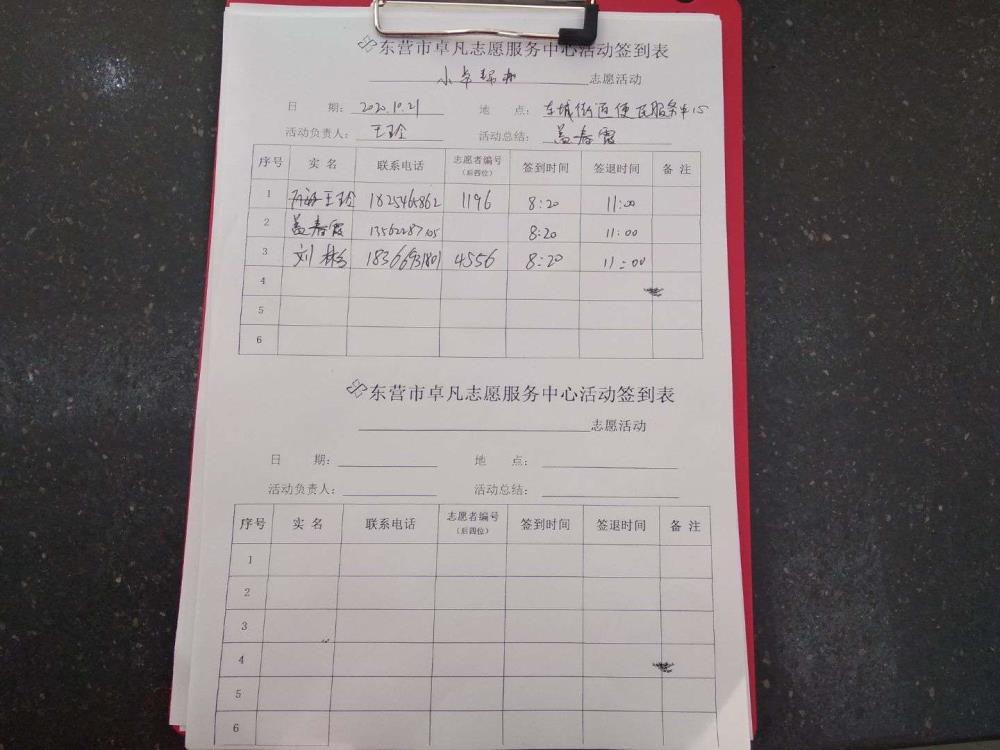 东营市卓凡志愿服务中心活动签到表
小卓帮办 志愿活动
日 期: 2020.10.21 地 点: 东城街道便民服务中心
活动负责人: 王玲 活动总结: 盖春霞
序号 实 名 联系电话 志愿者编号 (后四位) 签到时间 签退时间 备 注
1 王玲 1196 8:20 11:00
2 盖春霞 8:20 11:00
3 刘彬 4556 8:20 11:00
4
5
6
东营市卓凡志愿服务中心活动签到表
志愿活动
日 期: 地 点:
活动负责人: 活动总结:
序号 实 名 联系电话 志愿者编号 (后四位) 签到时间 签退时间 备 注
1
2
3
4
5
6